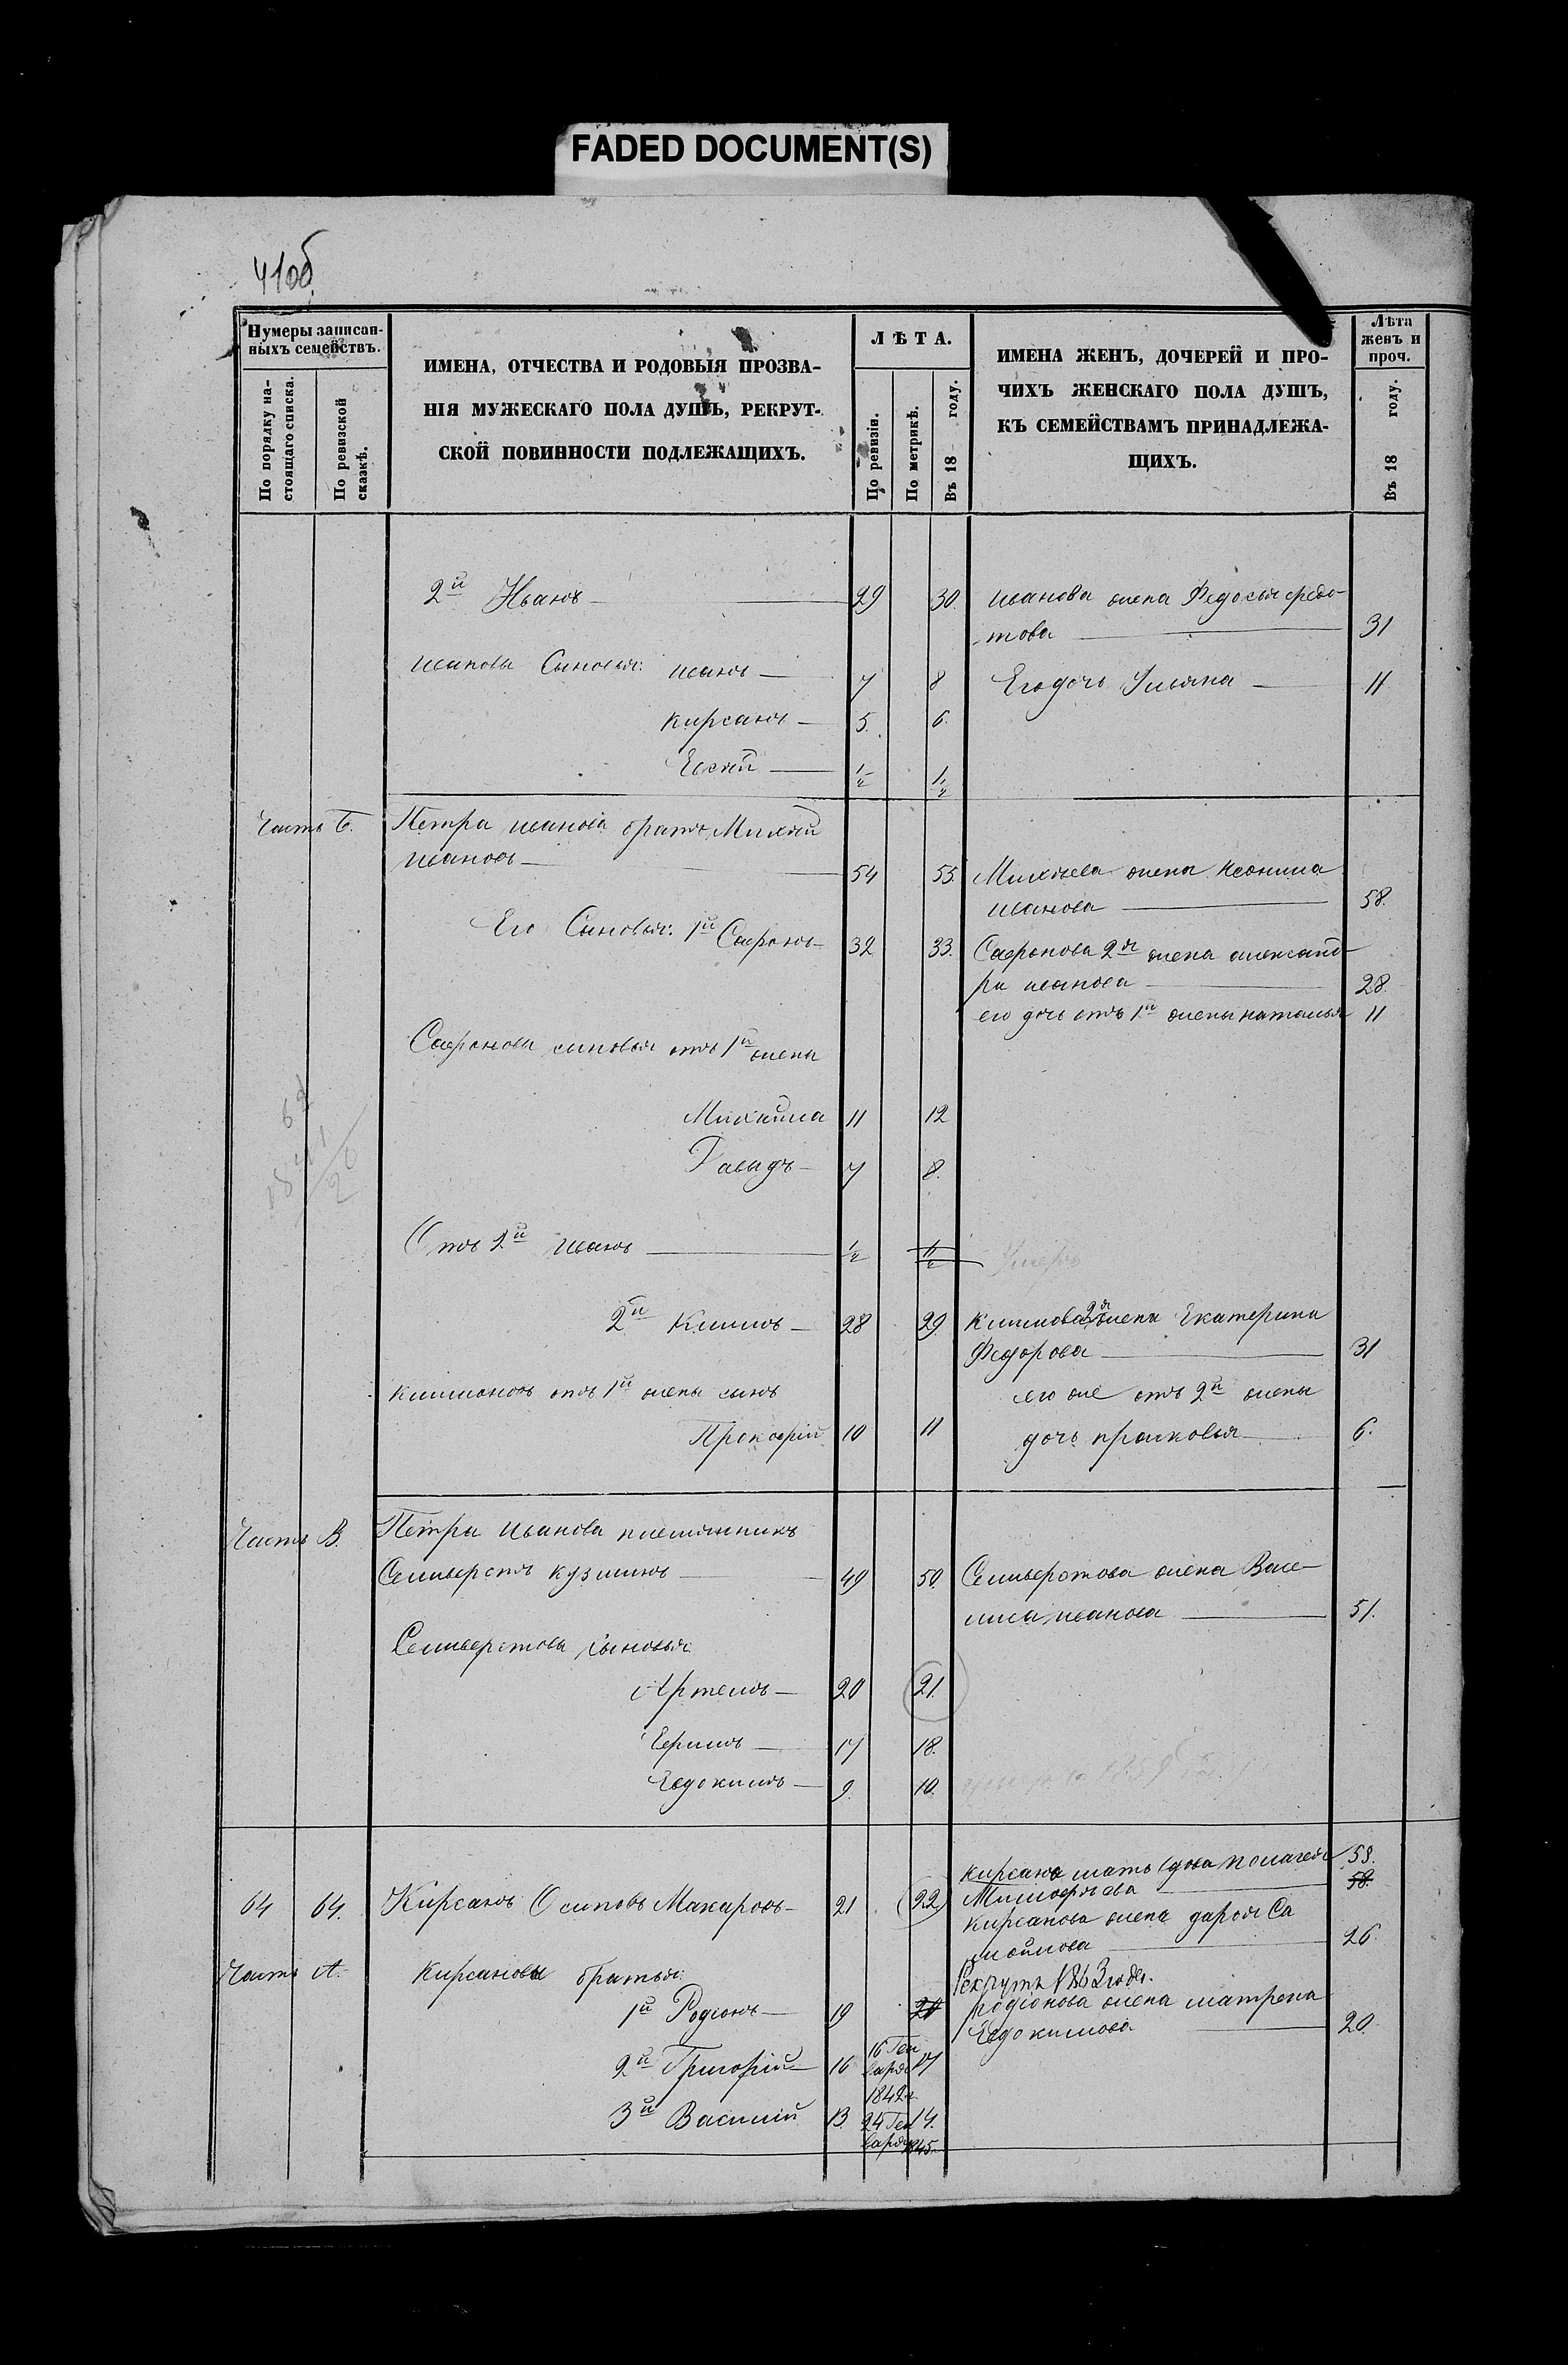 FADED DOCUMENT(S)
41об
Нумеры записан-
ныхъ семействъ.
По порядку на-
стоящаго списка.
По ревизской
сказкѣ.
ИМЕНА, ОТЧЕСТВА И РОДОВЫЯ ПРОЗВА-
НІЯ МУЖЕСКАГО ПОЛА ДУШЪ, РЕКРУТ-
СКОЙ ПОВИННОСТИ ПОДЛЕЖАЩИХЪ.
ЛѢТА.
По ревизіи.
По метрикѣ.
Въ 18 году.
ИМЕНА ЖЕНЪ, ДОЧЕРЕЙ И ПРО-
ЧИХЪ ЖЕНСКАГО ПОЛА ДУШЪ,
КЪ СЕМЕЙСТВАМЪ ПРИНАДЛЕЖА-
ЩИХЪ.
Лѣта
женъ и
проч.
Въ 18 году.
2й Иванъ 29 30. иванова жена Федосья федо-
това 31
иванова Сыновья: иванъ 7 8 Его дочь Ульяна 11
кирсанъ 5. 6.
Евсей ½ 1½
Часть Б. Петра иванова братъ Михей
ивановъ 54 55. Михѣева жена
иванова 58.
Его Сыновья: 1й Сафронъ 32 33. Сафронова 2я жена александ-
ра иванова 28.
его дочь отъ 1й жены наталья 11
Сафронова сыновья отъ 1й жены
Михайла 11 12
Давыдъ 7 8.
Отъ 2й иванъ ½ 1½ Умеръ
2й Климъ 28 29 климова 2я жена Екатерина
Федорова 31
климановъ отъ 1й жены сынъ его же отъ 2й жены
Прокофій 10 11 дочь прасковья 6.
Часть В. Петра иванова племянникъ
Селиверстъ кузминъ 49 50. Селиверстова жена Васи-
лиса иванова 51.
Селиверстова сыновья:
Артемъ 20 21.
Ефимъ 17 18.
Евдокимъ 9. 10.
кирсана мать вдова пелагея 58.
64 64. Кирсанъ Осиповъ Макаровъ 21 22) 58.
кирсанова жена дарья Са
мойлова 26.
Часть А. Кирсановы братья:
Рекрутъ 1863 года.
1й Родіонъ 19 20 родіонова жена матрена
Евдокимова 20.
2й Григорій 16 16 Ген
варя 17
1842г.
3й Василій 13. 24 Ген 14.
варя 1845.